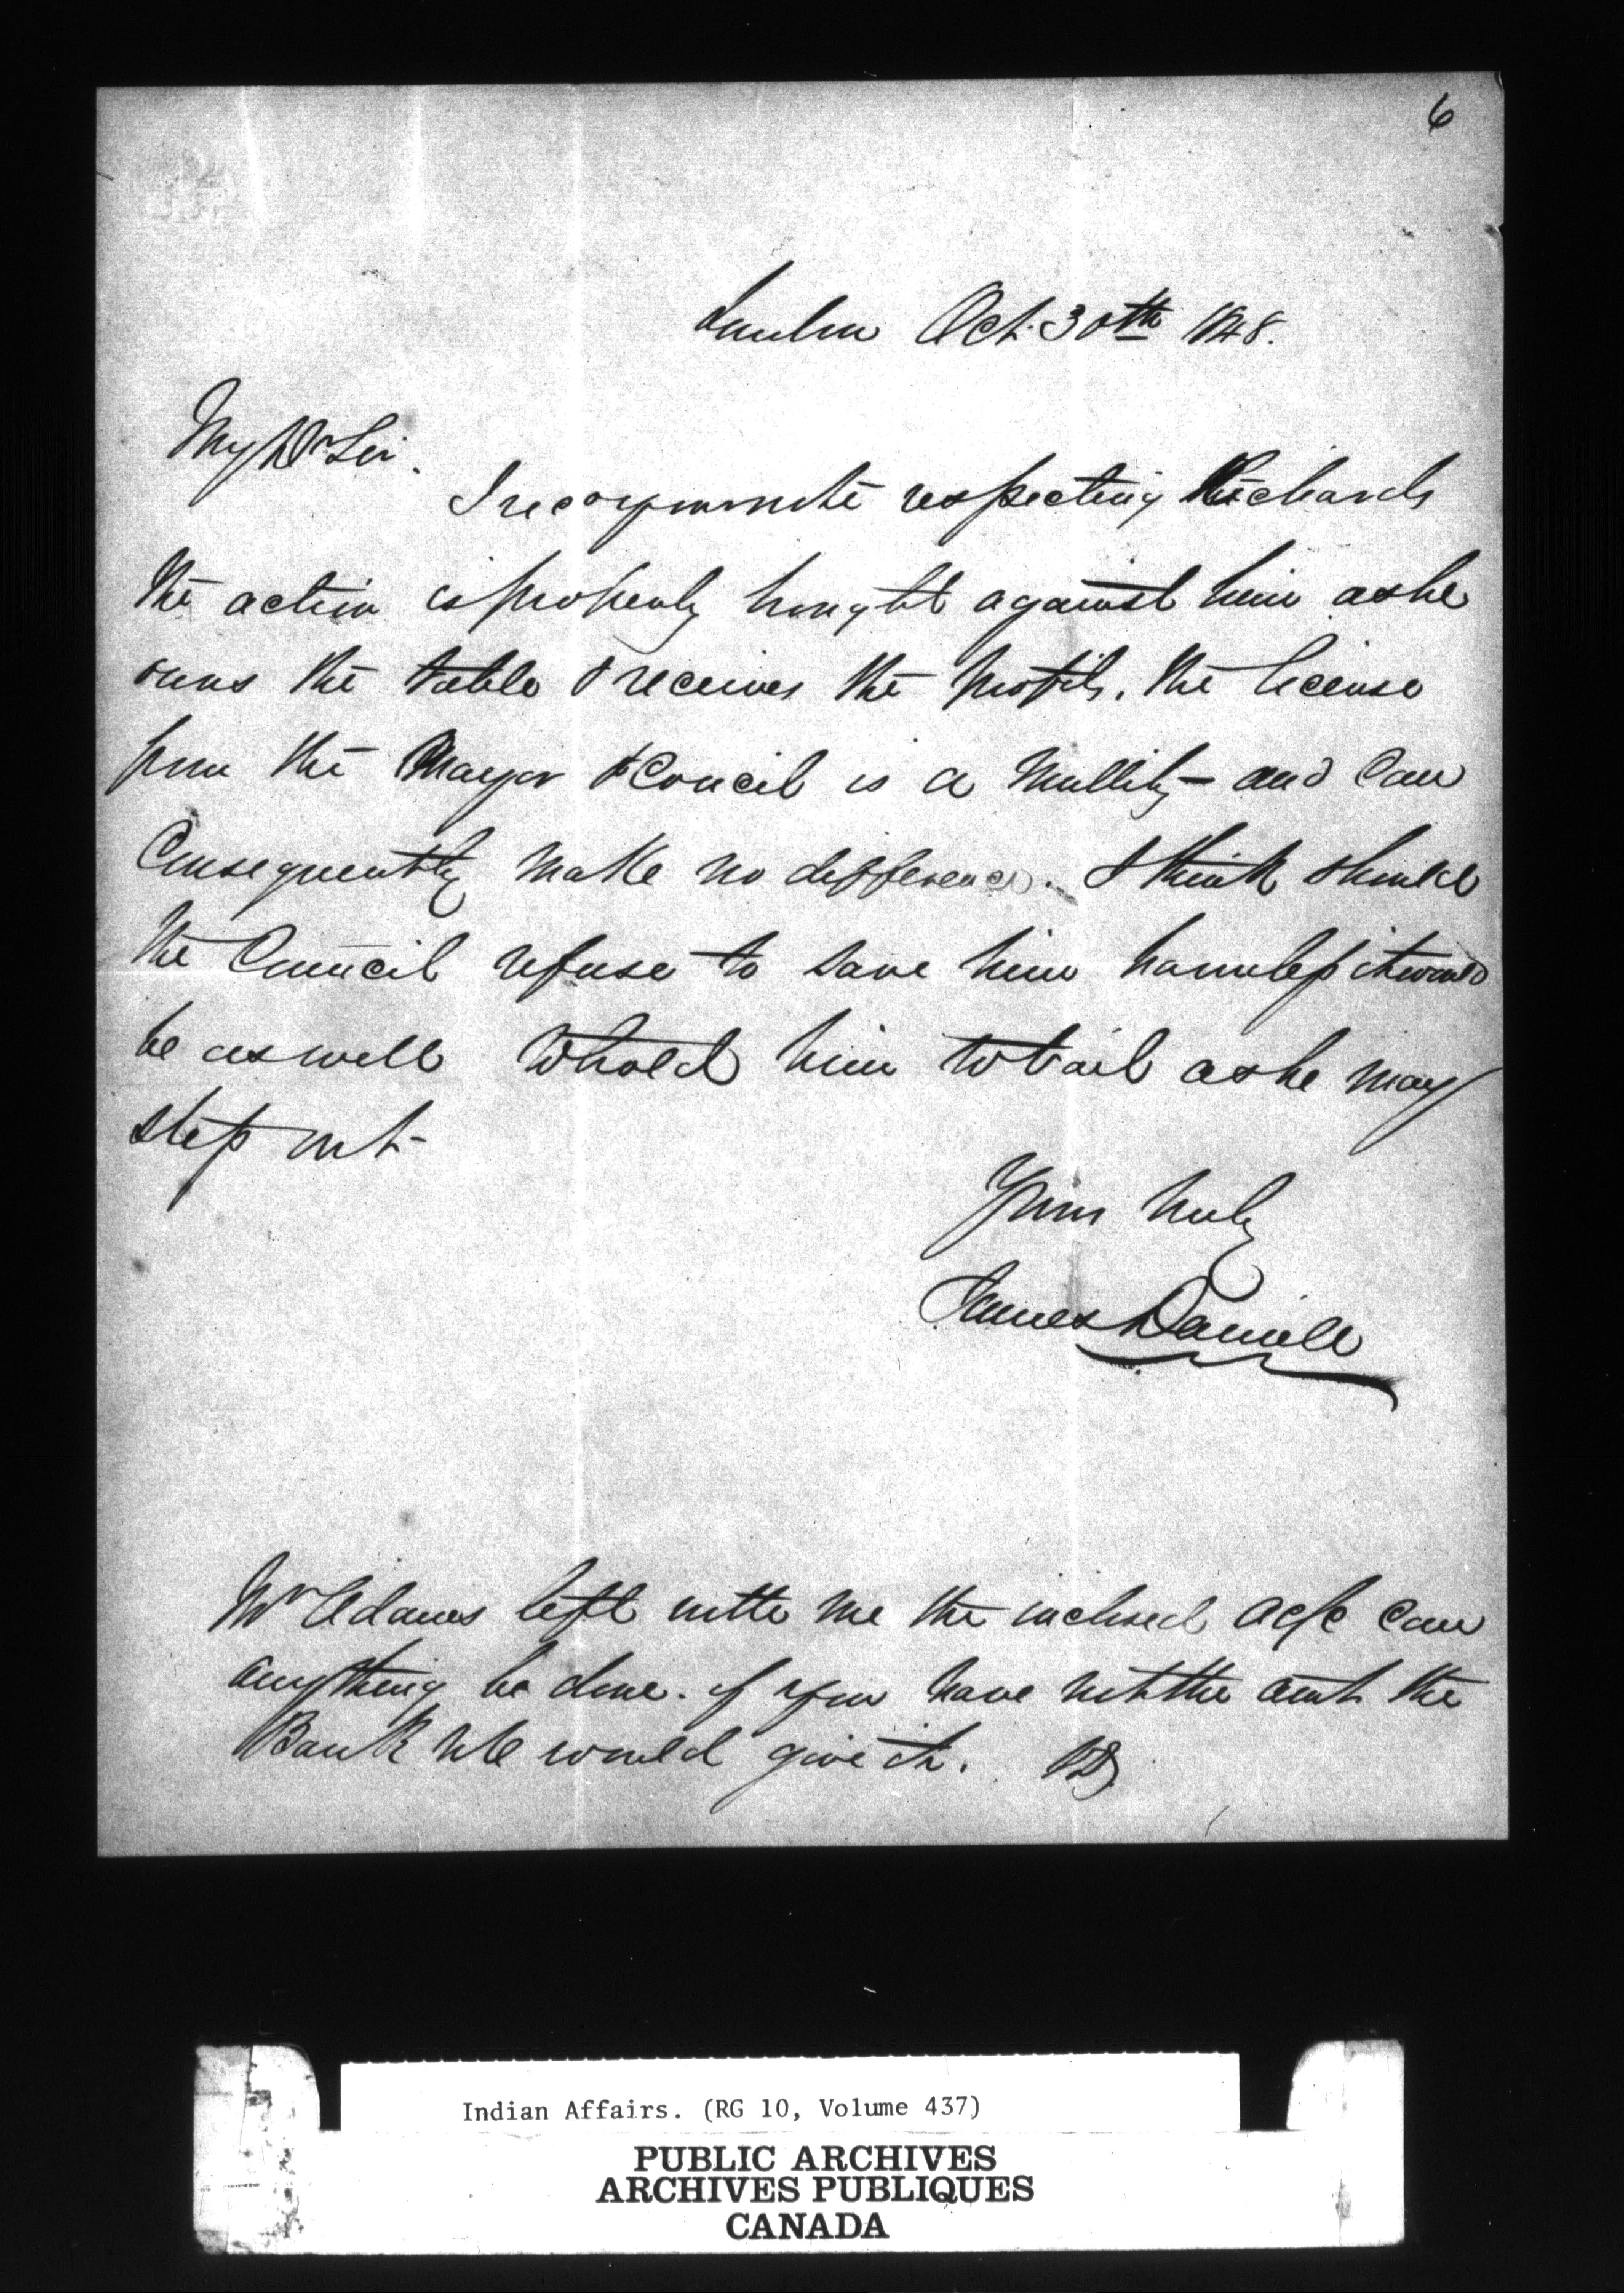 6
London Oct. 30th 1848.
My Dr Sir.
I rec your note respecting Richards
the action is properly brought against him as he
owns the table & receives the profits. the license
from the Mayor & Council is a Nullity - and can
Consequently make no difference. I think should
the Council refuse to save him harmless it would
be as well to hold him to bail as he may
step out -
Yours truly
James Daniell
Mr Adams left with me the inclosed a/c can
anything be done. if you have not the amt. the
Bank would give it. JD
Indian Affairs. (RG 10, Volume 437)
PUBLIC ARCHIVES
ARCHIVES PUBLIQUES
CANADA